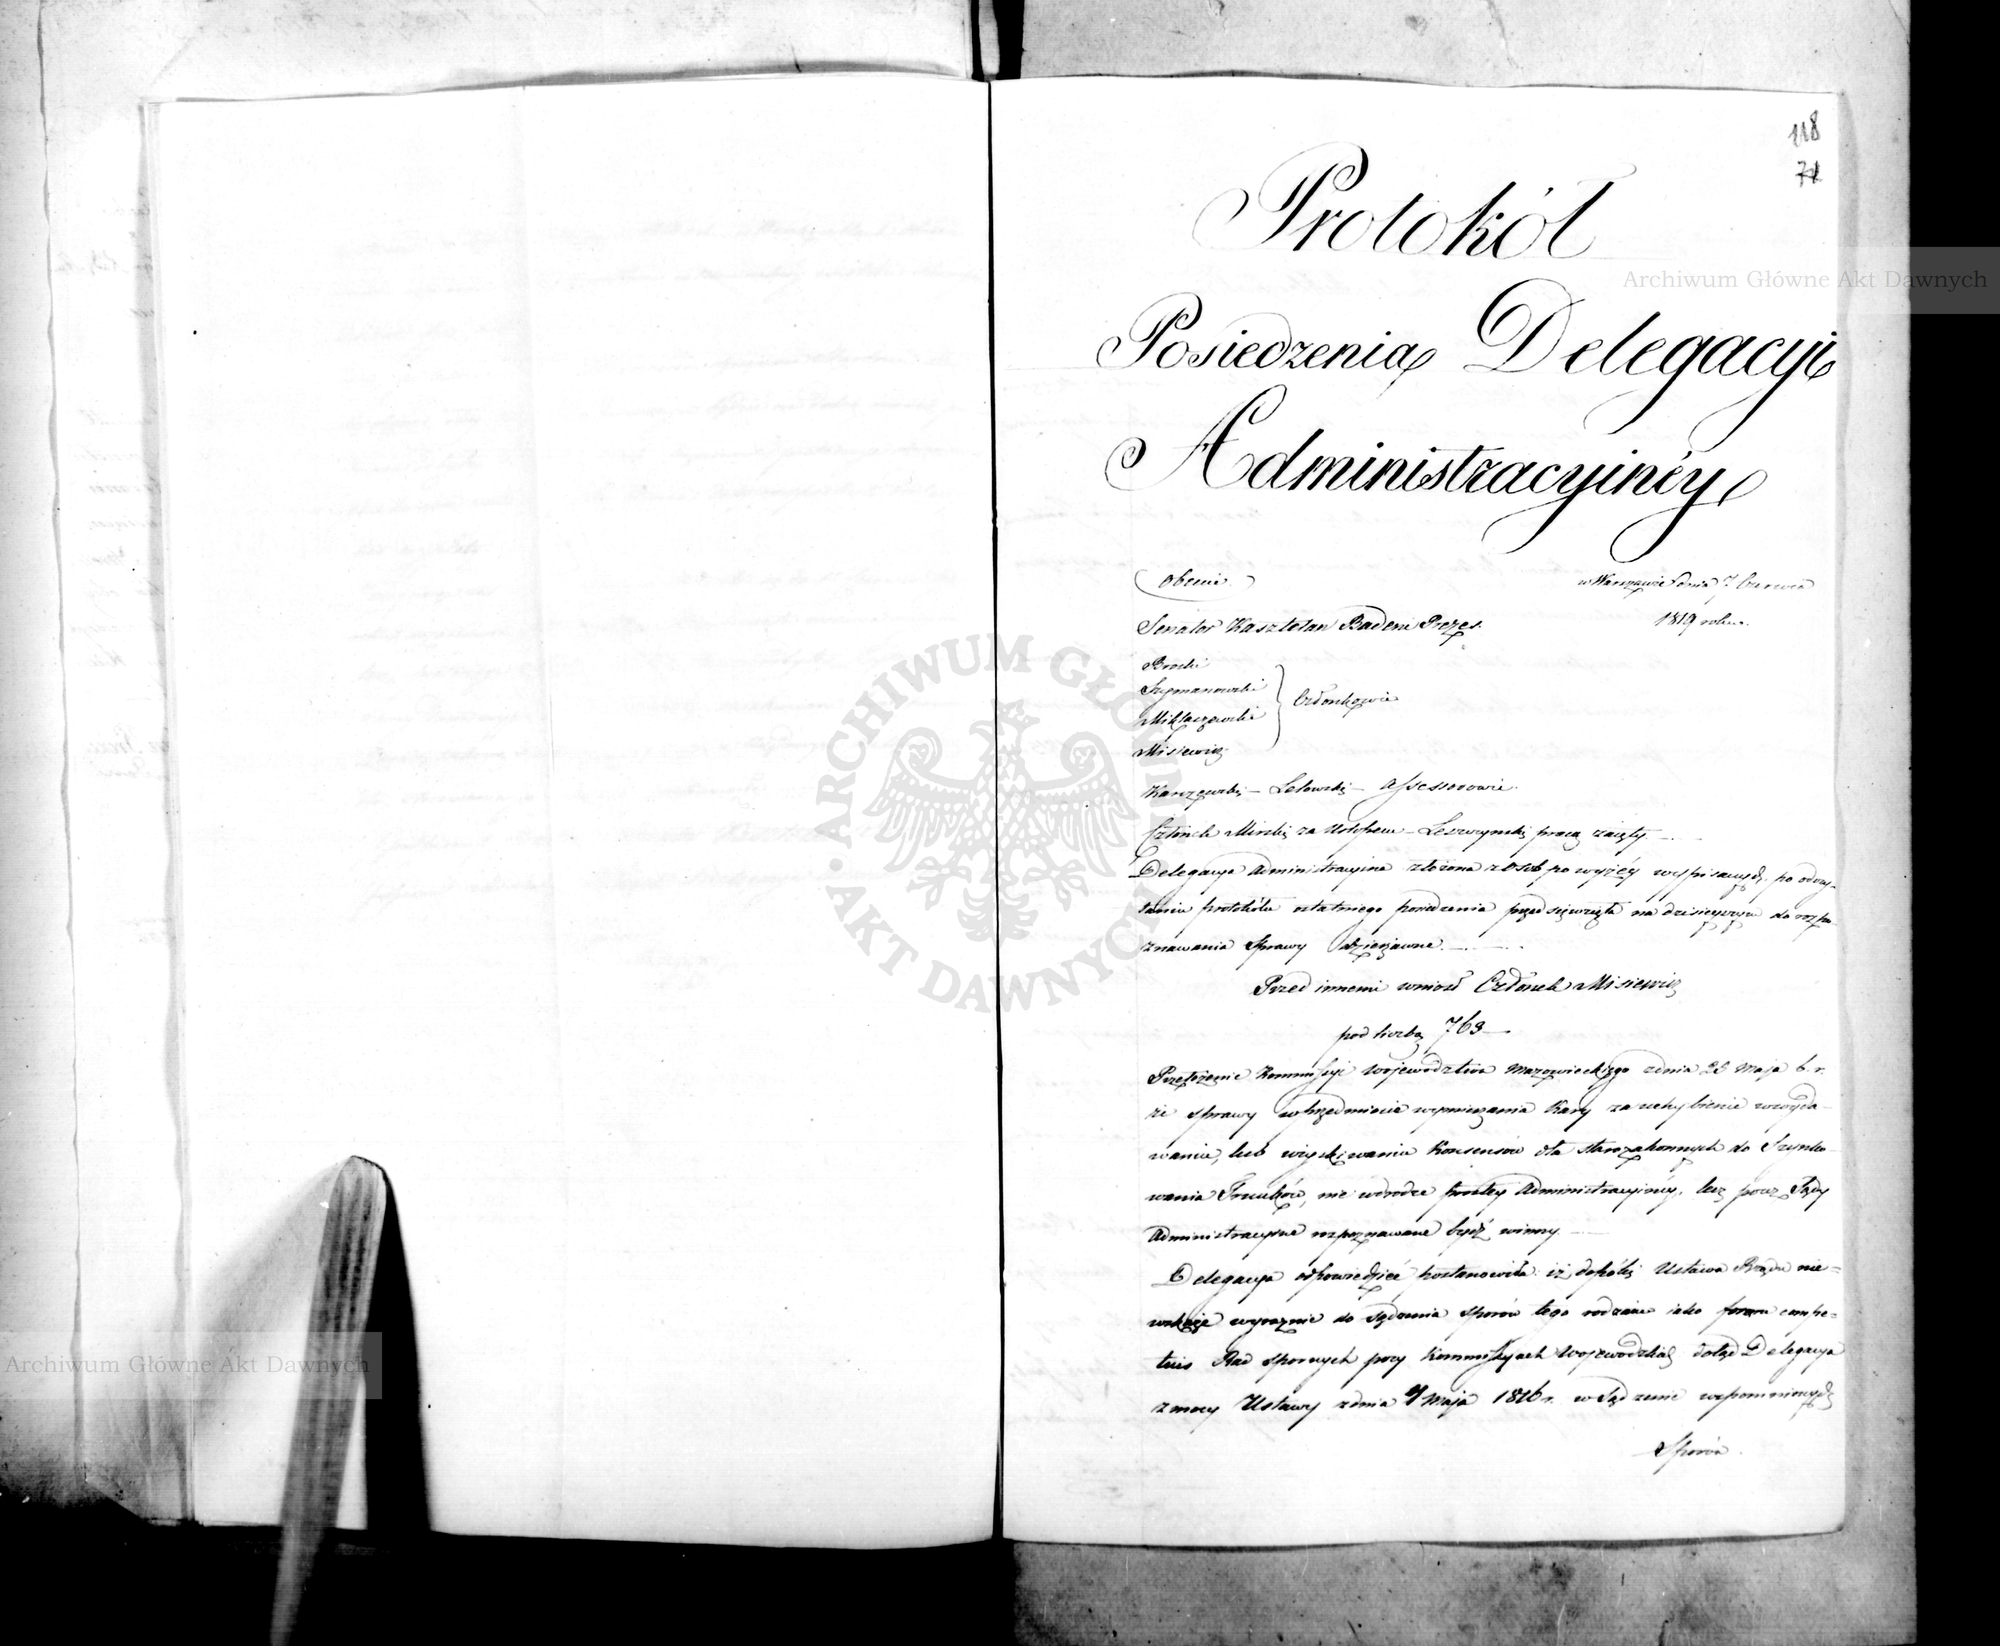 118
71
Protokół
Posiedzenia Delegacyi
Administracyinéy
Obecni
w Warszawie dnia 7 Czerwca
1819 roku.
Senator Kasztelan Badeni Prezes.
Brocki
Szymanowski
Miklaszewski
Misiewicz
Członkowie
Karczewski – Letowski – Assessorowie.
Członek Mirski za Urlopem – Leszczynski pracą zaięty.
Delegacya Administracyina złożona z osób powyżéy wypisanych, po odczy-
taniu protokółu ostatniego posiedzenia przedsięwzięła na dzisieyszym do rozpo-
znawania Sprawy
Przed innemi wniosł Członek Misiewicz
pod liczbą 763
Przełożenie Kommissyi Województwa Mazowieckiego z dnia 28 Maja b. r.
że sprawy w przedmiocie wymierzania Kary za uchybienie w wyda-
waniu, lub wyiskiwaniu Konsensów dla starozakonnych do Szynko-
wania Trunków, nie w drodze prostey Administracyinéy, lecz przez Sądy
Administracyine rozpoznawane bydź winny.
Delegacya odpowiedzieć postanowiła: iż dopóki Ustawa Rządu nie-
wskaże wyraznie do sądzenia sporów tego rodzaiu iako forum compe-
tens Rad spornych przy Kommissyach Wojewodzkich dotąd Delegacya
z mocy Ustawy z dnia 4 Maja 1816 r. w Sądzenie wspomnionych
Sporów.
Archiwum Główne Akt Dawnych
Archiwum Główne Akt Dawnych
ARCHIWUM GŁÓWNE AKT DAWNYCH